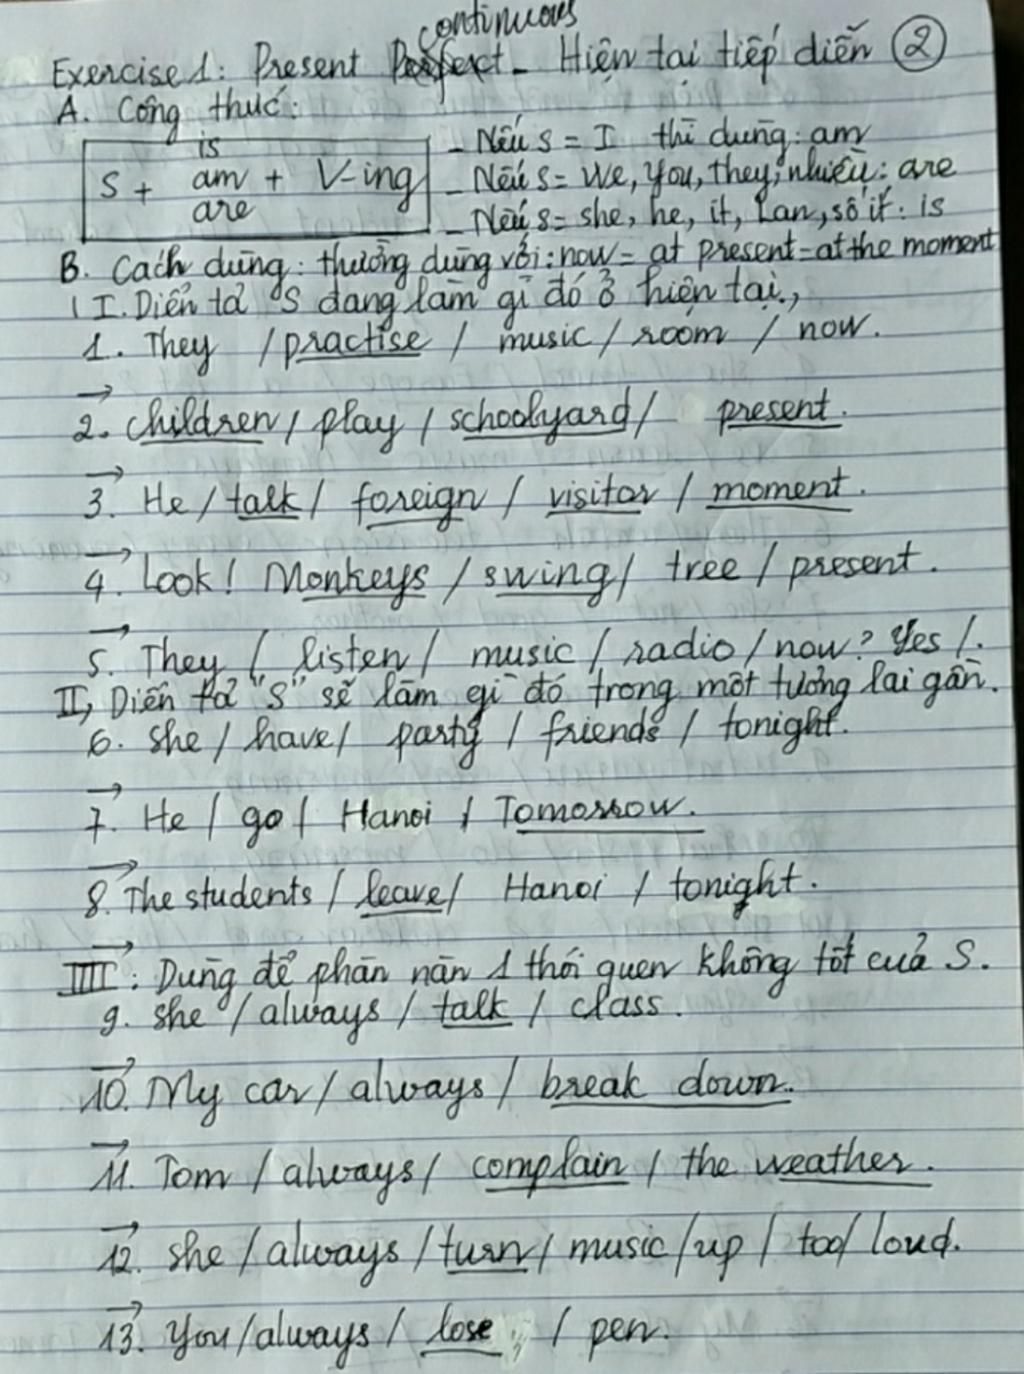 continuous
Exercise 1: Present Perfect - Hiện tại tiếp diễn ②
A. Công thức:
S + is am are + V-ing
- Nếu S = I thì dùng: am
- Nếu S = We, You, they, nhiều: are
- Nếu S = she, he, it, Lan, số ít: is
B. Cách dùng: thường dùng với: now = at present = at the moment
I. Diễn tả "S đang làm gì đó ở hiện tại.,
1. They / practise / music / room / now.
→
2. children / play / schoolyard / present.
→
3. He / talk / foreign / visitor / moment.
→
4. Look! Monkeys / swing / tree / present.
→
5. They / listen / music / radio / now? Yes /.
II, Diễn tả "S" sẽ làm gì đó trong một tương lai gần.
6. she / have / party / friends / tonight.
→
7. He / go / Hanoi / Tomorrow.
→
8. The students / leave / Hanoi / tonight.
→
III: Dùng để phàn nàn 1 thói quen không tốt của S.
9. she / always / talk / class.
→
10. My car / always / break down.
→
11. Tom / always / complain / the weather.
→
12. she / always / turn / music / up / too / loud.
→
13. You / always / lose / pen.